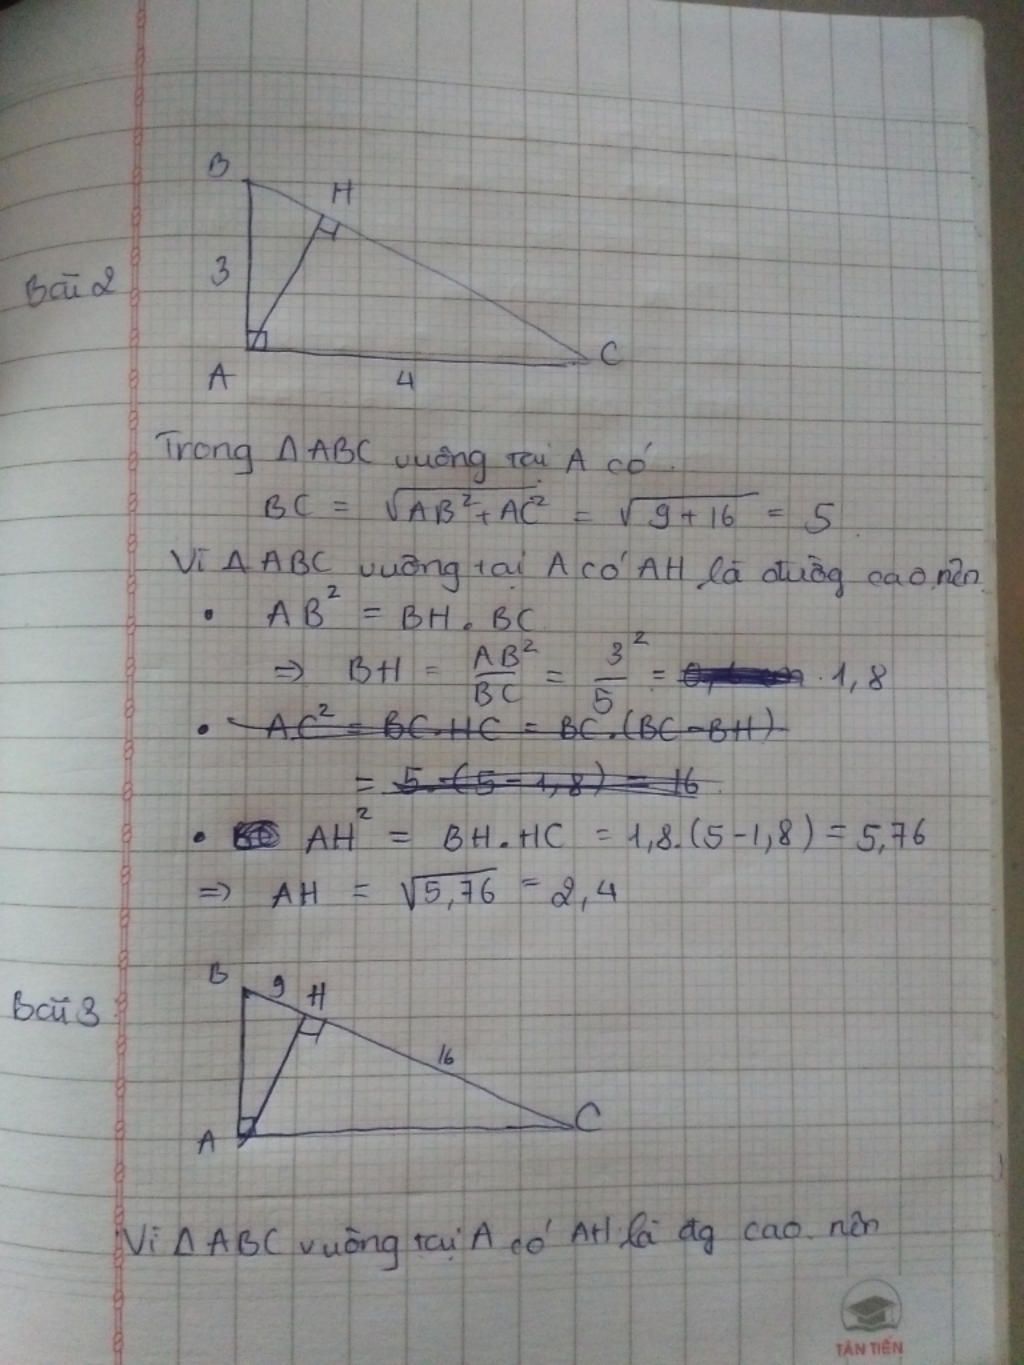 B
H
Bài 2
3
A
4
C
Trong ΔABC vuông tại A có
BC = √AB²+AC² = √9+16 = 5
Vì ΔABC vuông tại A có AH là đường cao nên
• AB² = BH.BC
=> BH = AB²/BC = 3²/5 = 1,8
• AC² = BC.HC = BC.(BC-BH)
= 5.(5-1,8) = 16
• AH² = BH.HC = 1,8.(5-1,8) = 5,76
=> AH = √5,76 = 2,4
B
9
H
Bài 3
16
C
A
Vì ΔABC vuông tại A có AH là đg cao nên
TÂN TIẾN